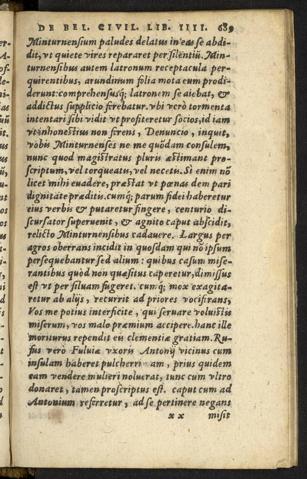 DE BEL. CIVIL. LIB. IIII. 689
Minturnensium paludes delatus in eas se abdi-
dit, vt quiete vires repararet per silentiū. Min-
turnensibus autem latronum receptacula per-
quirentibus, arundinum folia mota eum prodi-
derunt: comprehensusq́; latronem se aiebat, &
addictus supplicio ferebatur. vbi verò tormenta
intentari sibi vidit vt profiteretur socios, id iam
vt inhonestius non ferens, Denuncio, inquit,
vobis Minturnenses ne me quōdam consulem,
nunc quod magistratus pluris æstimant pro-
scriptum, vel torqueatis, vel necetis. Si enim nō
licet mihi euadere, præstat vt pœnas dem pari
dignitate præditis. cumq́; parum fidei haberetur
eius verbis & putaretur fingere, centurio di-
scursator superuenit, & agnito caput abscidit,
relicto Minturnensibus cadauere. Largus per
agros oberrans incidit in quosdam qui nō ipsum
persequebantur sed alium: quibus casum mise-
rantibus quòd non quæsitus caperetur, dimissus
est vt per siluam fugeret. cumq́; mox exagita-
retur ab alijs, recurrit ad priores vociferans,
Vos me potius interficite, qui seruare voluistis
miserum, vos malo præmium accipere. hanc ille
moriturus rependit eis clementiæ gratiam. Ru-
fus verò Fuluiæ vxoris Antonij vicinus cum
insulam haberet pulcherri am, prius quidem
eam vendere mulieri noluerat, tunc cum vltro
donaret, tamen proscriptus est. caput cum ad
Antonium referretur, ad se pertinere negans
x x misit